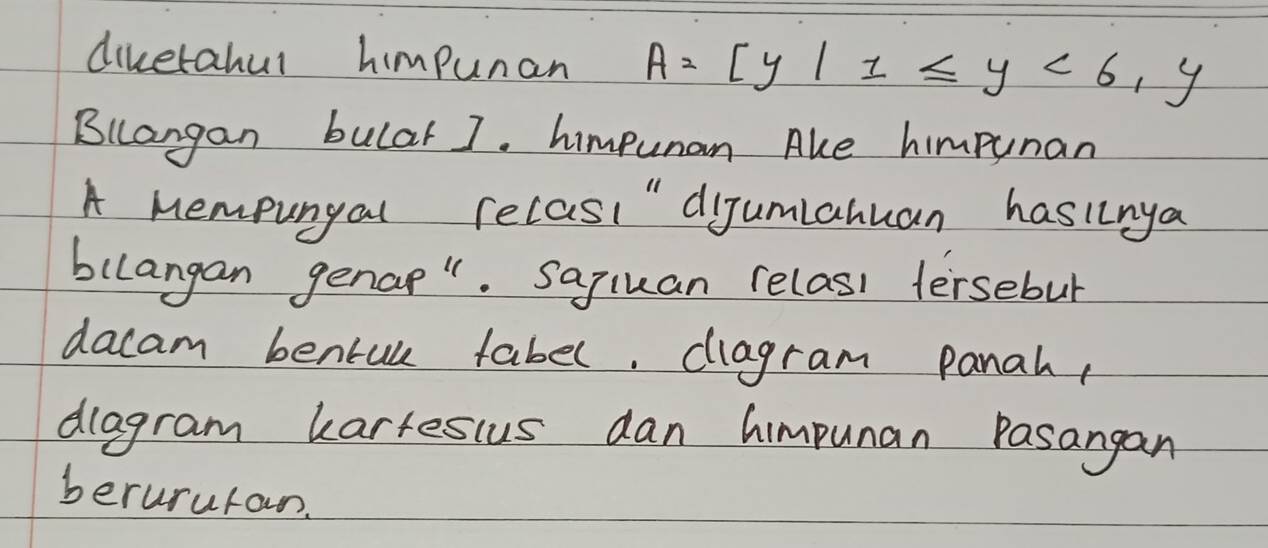 diketahui himpunan A = [y | 1 ≤ y < 6, y
Bilangan bulat]. himpunan A ke himpunan
A Mempunyai relasi "dijumlahkan hasilnya
bilangan genap". Sajikan relasi tersebut
dalam bentuk tabel. diagram panah,
diagram kartesius dan himpunan Pasangan
berurutan.